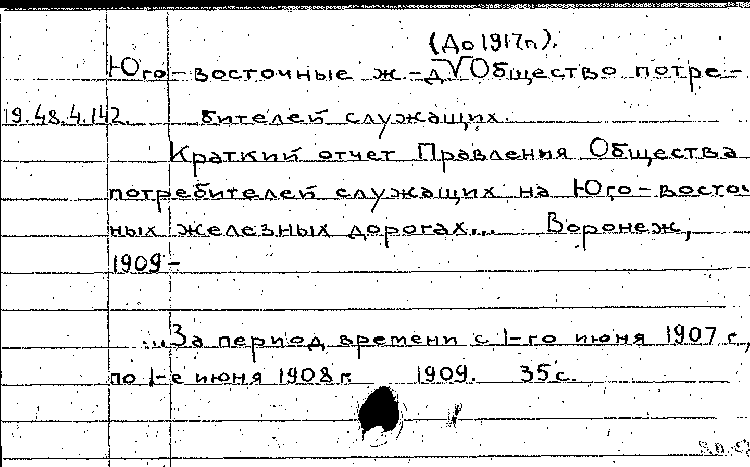 (До 1917г.).
Юго-восточные ж-д √ Общество потре-
19.48.4.142. бителей служащих.
Краткий отчет Правления Общества
потребителей служащих на Юго-восточ
ных железных дорогах... Воронеж,
1909-
...За период времени с 1-го июня 1907 г,
по 1-е июня 1908 г. 1909. 35 с.